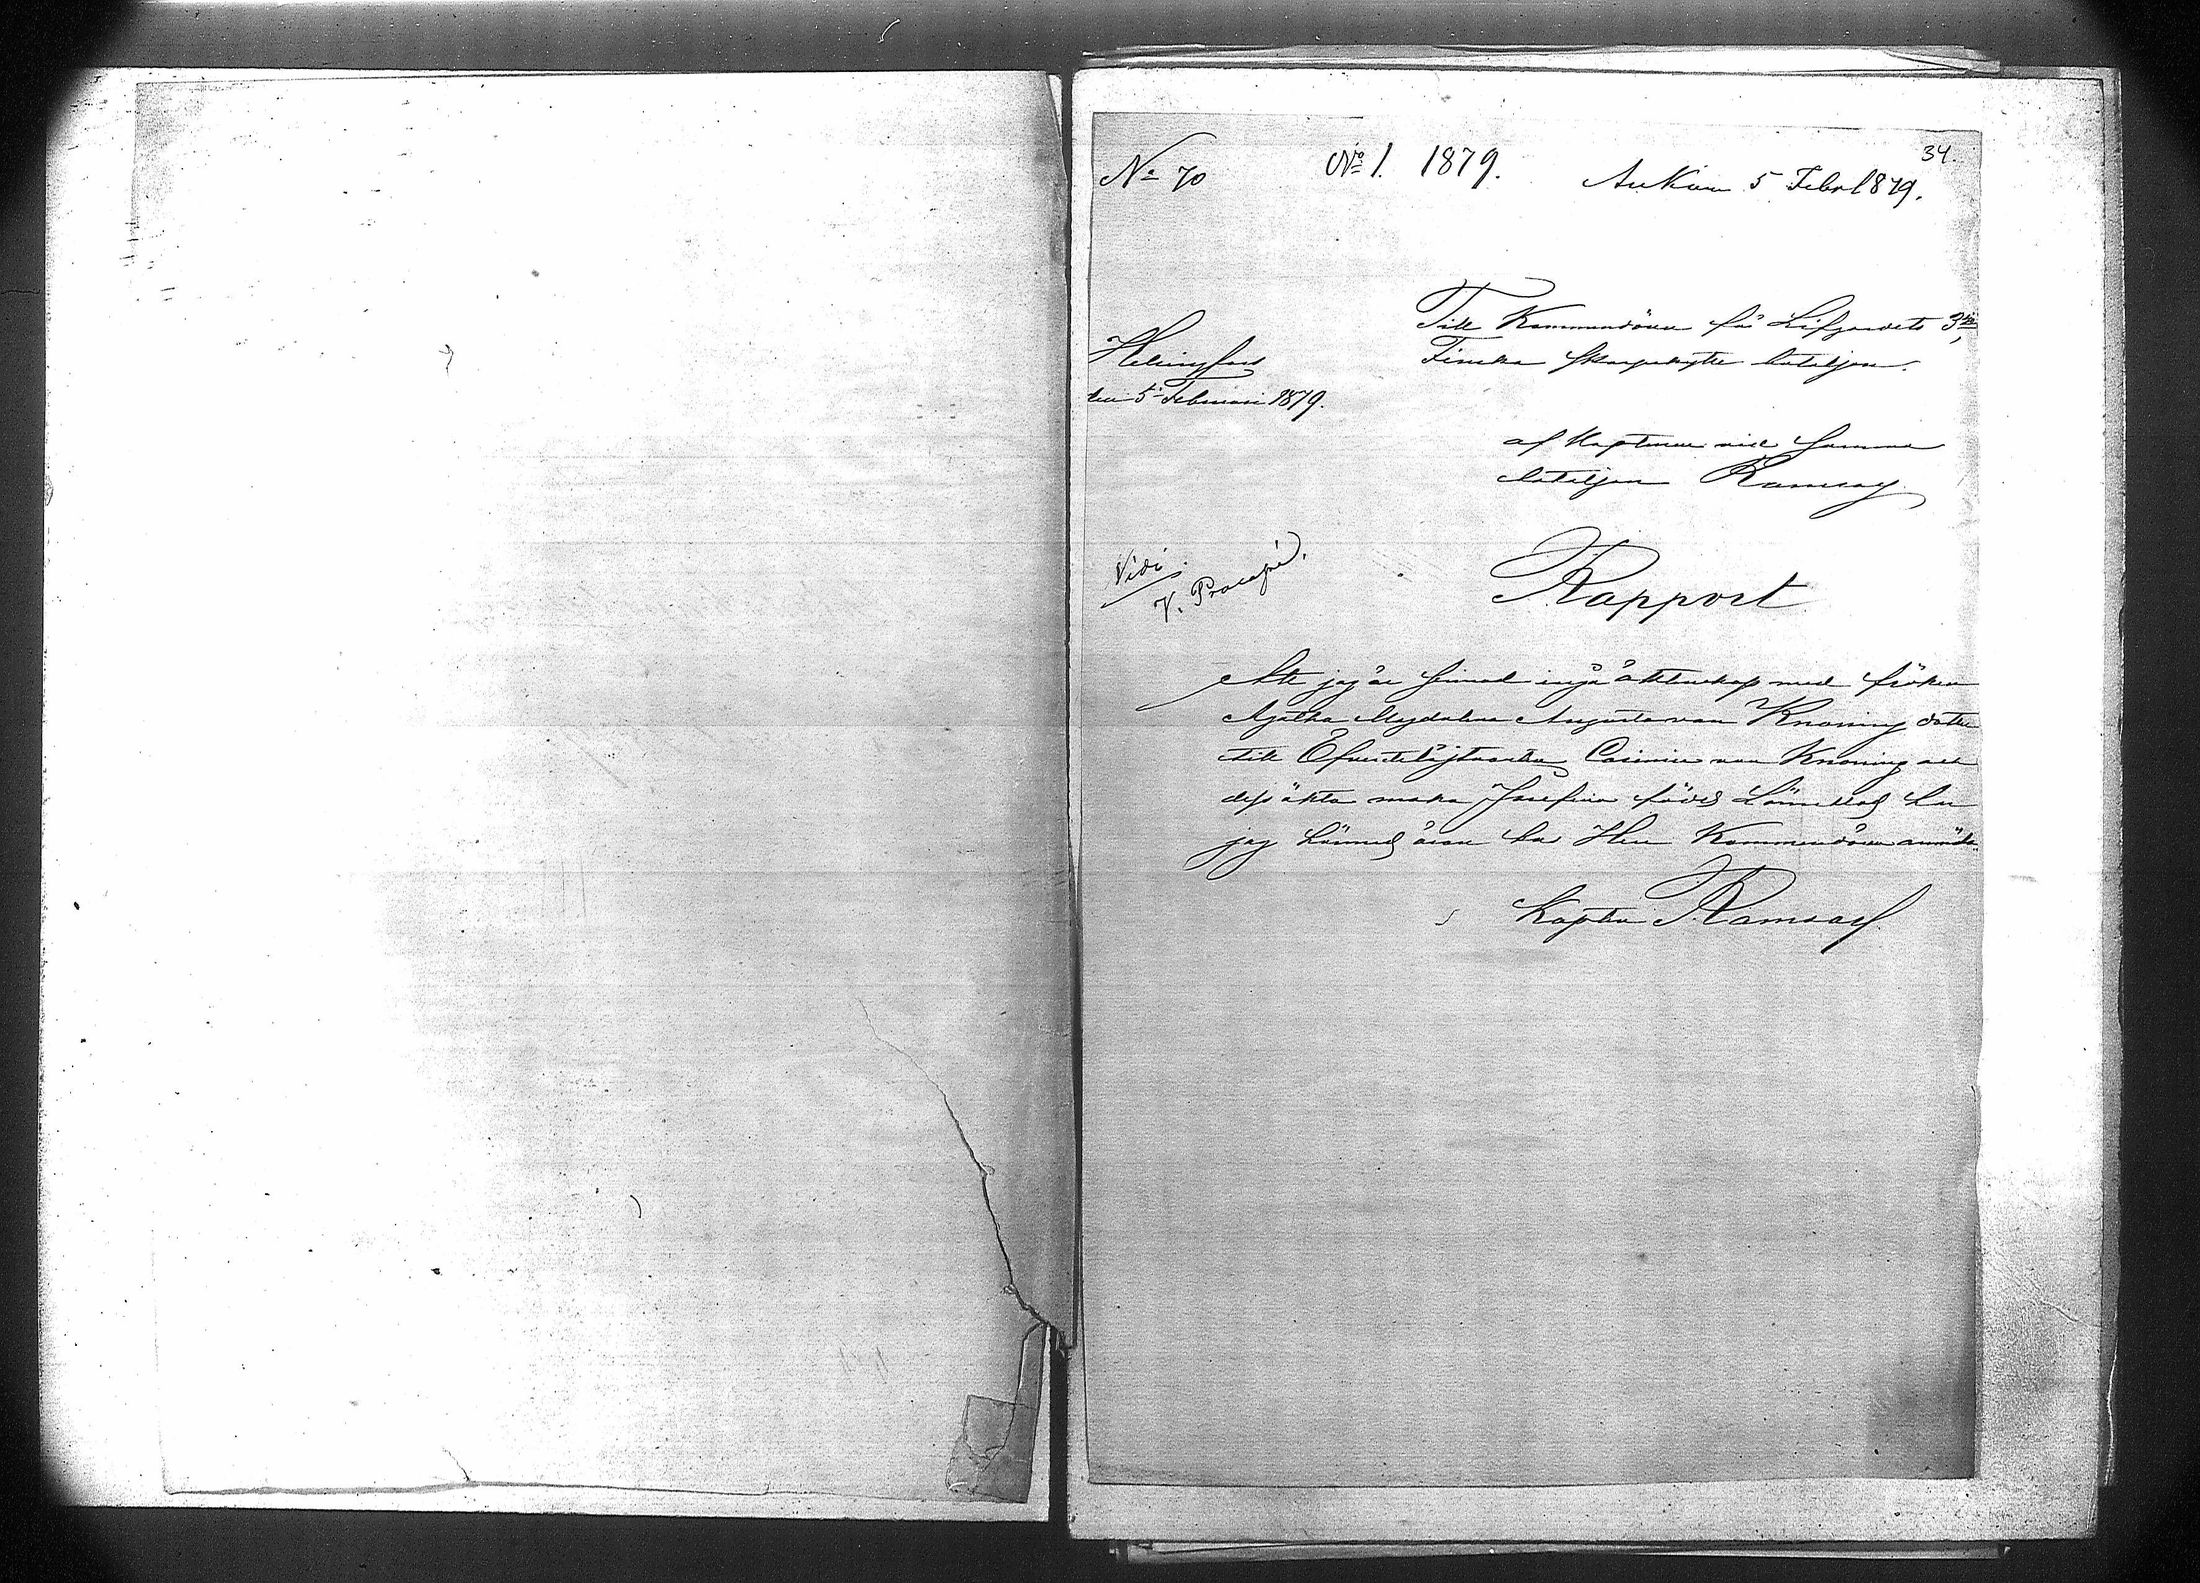 34.
No 70
No 1. 1879.
Ankom 5 Febr 1879.
Till Kommendören för Lifgardets 3dje
Finska skarpskytte bataljon.
Helsingfors
den 5 Februari 1879.
af Kaptenen vid samma
bataljon Ramsay.
Vidi
V. Procopé.
Rapport
Att jag är sinnad ingå äktenskap med fröken
Agatha Magdalena Augusta von Knorring dotter
till Öfverstelöjtnanten Casimir von Knorring och
dess äkta maka Josefina född Lönnblad har
jag härmed äran hos Herr Kommendören anmäla.
Kapten Ramsay.